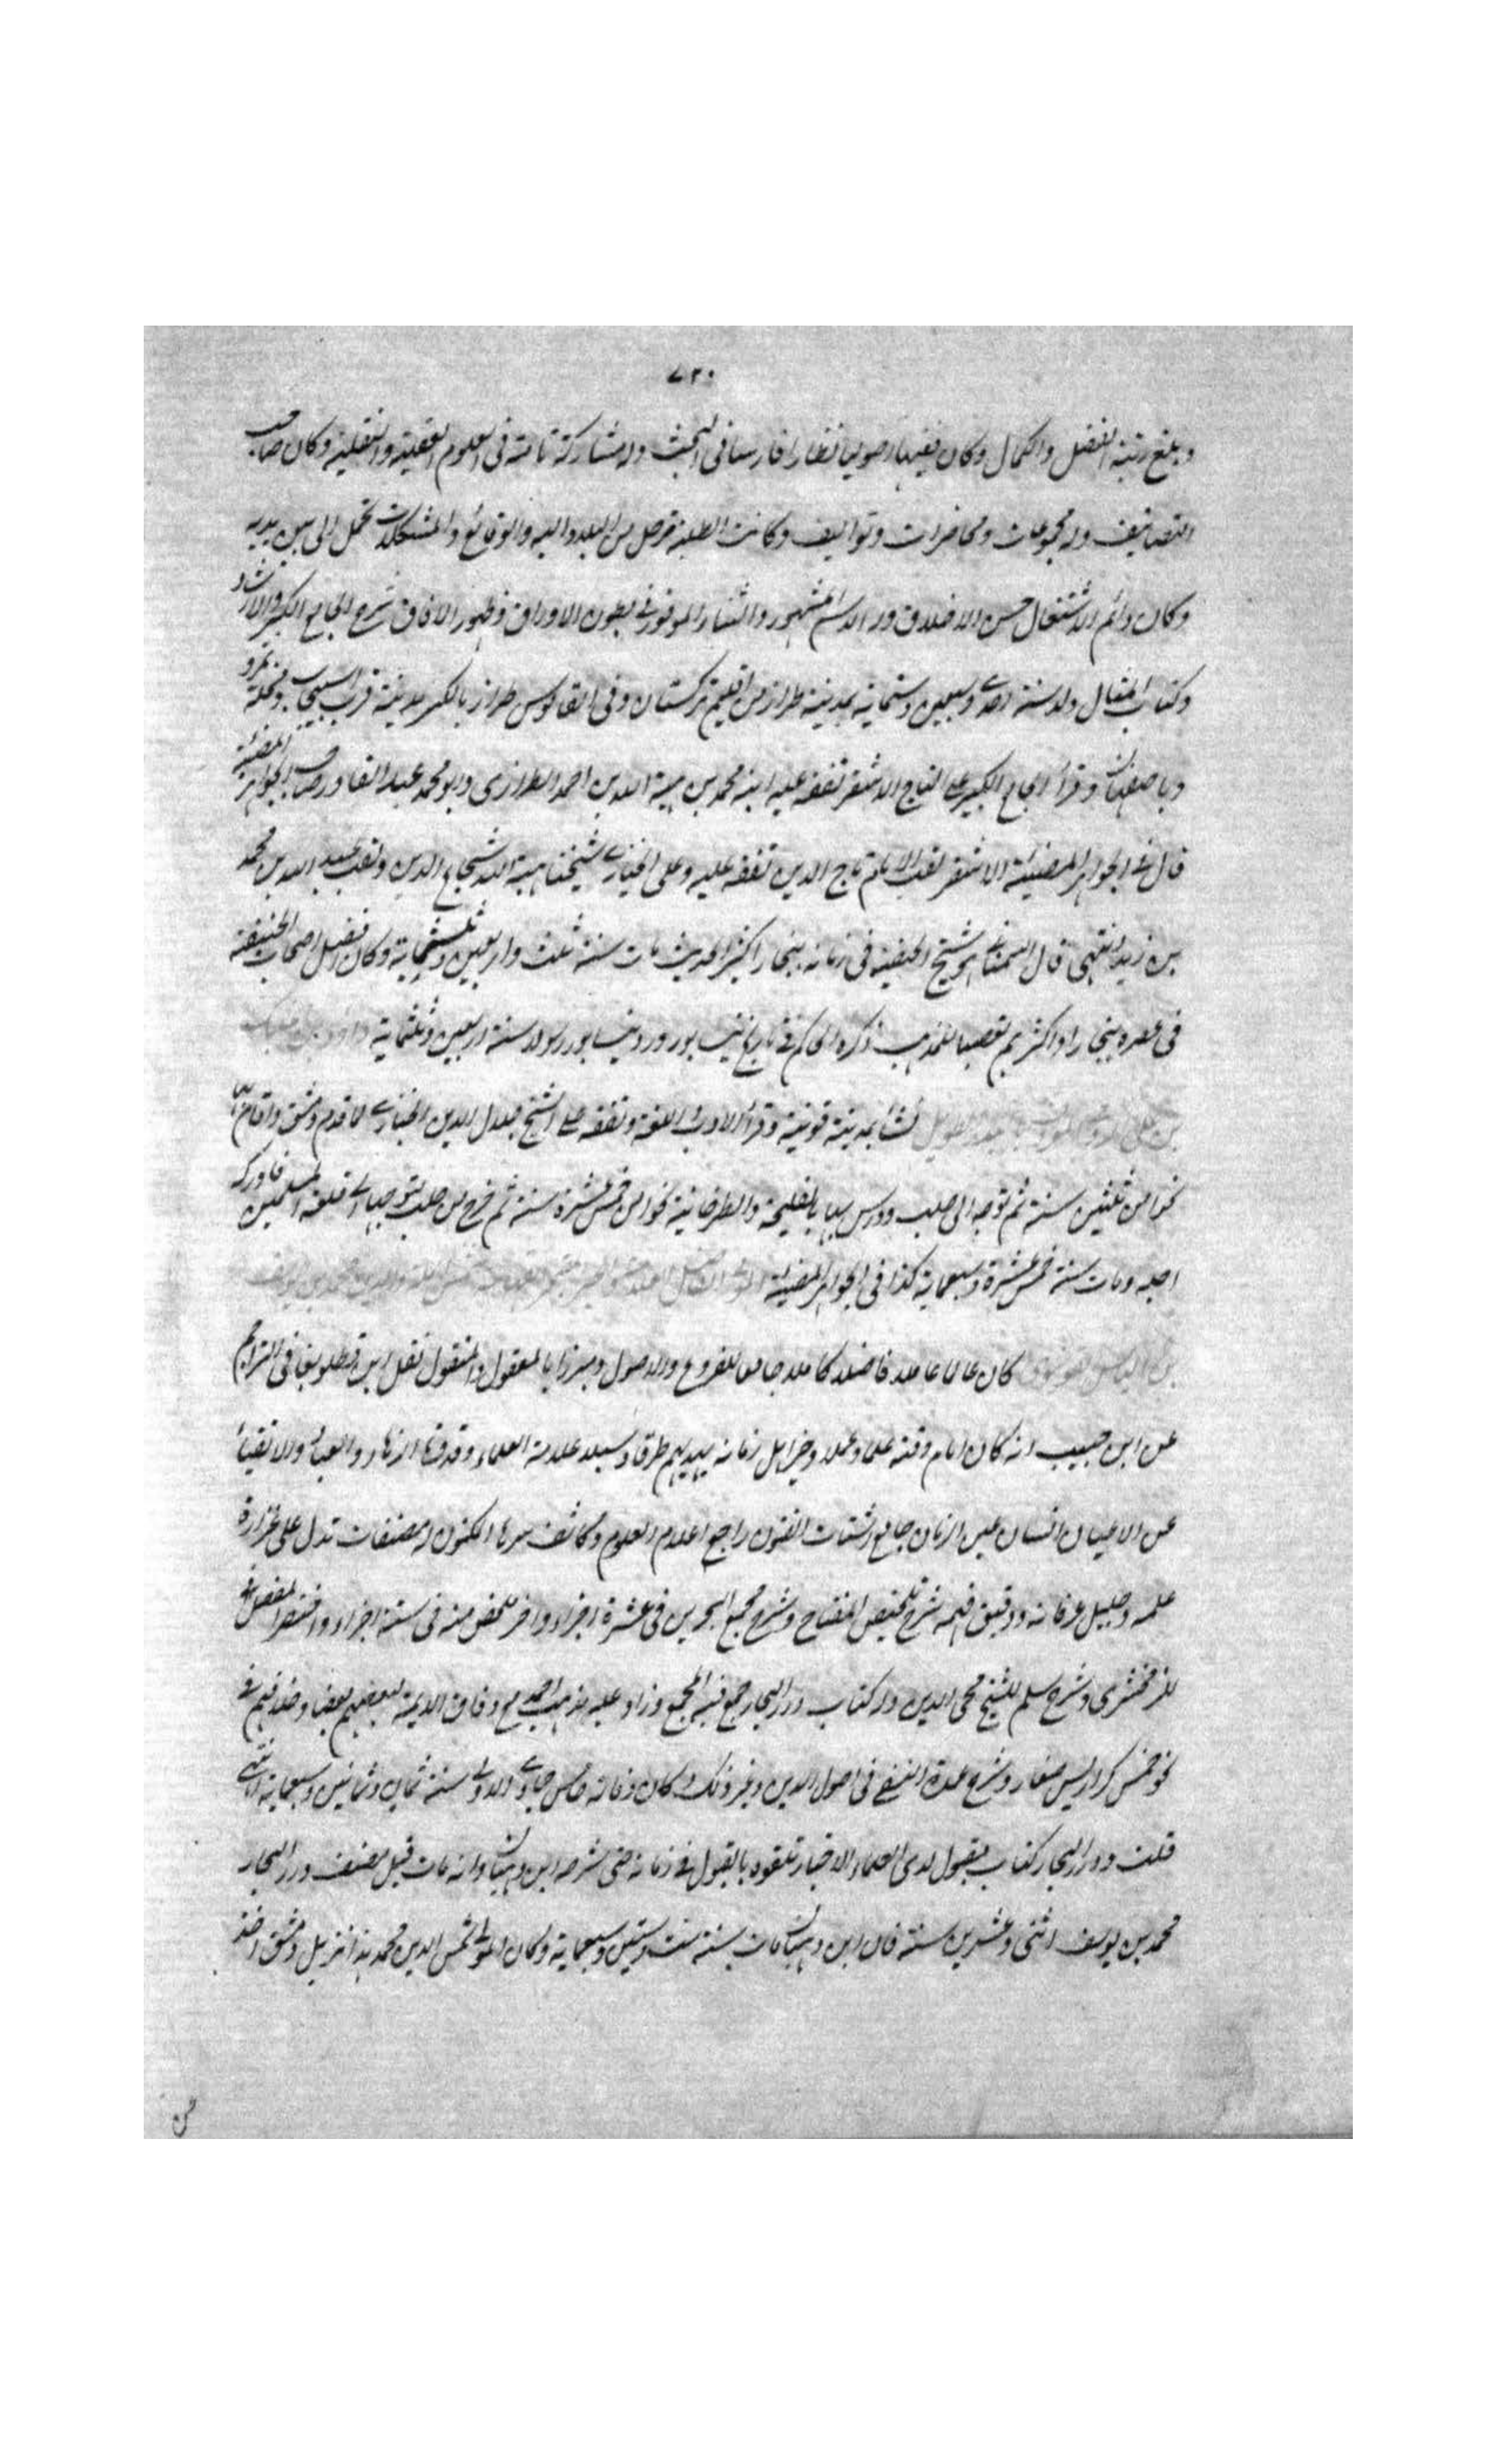 ٧٢٠
وبلغ رتبة الفضل والكمال وكان فقيها اصوليا نظارا فارسا فى البحث وله مشاركة تامة فى العلوم العقلية والنقلية وكان صاحب
التصانيف وله مجموعات ومحاضرات وتواليف وكانت الطلبة ترحل من البلاد اليه والوقائع والمشكلات تحمل الى بين يديه
وكان دائم الاشتغال حسن الاخلاق ورد الاسم المشهور والثناء الموفور فى بطون الاوراق وظهور الافاق شرح الجامع الكبير والارشاد
وكتاب المثال ولد سنة احدى وسبعين وستماية بمدينة طراز من اقليم تركستان وفى القاموس طراز بالكسر مدينة قرب اسبيجاب ومحلة بمرو
وباصفهان وقرأ الجامع الكبير على التاج الاشقر تفقه عليه ابنه محمد بن هبة الله بن احمد الطرازى وابو محمد عبد القادر صاحب الجواهر المضيئة
قال فى الجواهر المضيئة الاشقر لقب الامام تاج الدين تفقه عليه وعلى الخبازى شيخنا هبة الله شجاع الدين ولقب عبد الله بن محمد
بن زيد الفقيه قال السمعانى هو شيخ الحنفية فى زمانه ببخارا كثير الحديث مات سنة ثلث واربعين وثلثماية وكان افضل اصحاب الحنيفة
فى عصره ببخارا واكثرهم تعصبا للمذهب ذكره الحاكم فى تاريخ نيسابور ورد نيسابور رسولا سنة اربعين وثلثماية داود بن
بن على الرومى الطويل نشأ بمدينة قونية وقرأ الادب واللغة وتفقه على الشيخ جلال الدين الخبازى لما قدم دمشق واقام بها
نحوا من ثلثين سنة ثم توجه الى حلب ودرس بها بالقليجية والطرخانية نحوا من خمس عشرة سنة ثم خرج من حلب متوجها الى قلعة المسلمين فادركه
اجله ومات سنة خمس عشرة وسبعماية كذا فى الجواهر المضيئة شمس الملة والدين محمد بن يوسف
بن الياس القونوى كان عالما عاملا فاضلا كاملا جامعا للفروع والاصول ومبرزا بالمعقول والمنقول نقل ابن قطلوبغا فى التراجم
عن ابن حبيب انه كان امام وقته علما وعملا وخير اهل زمانه يهديهم طرقا وسبلا علامة العلماء وقدوة الزهاد والعباد والاتقياء
عن الاعيان انسان عين الزمان جامع اشتات الفنون رافع اعلام العلوم وكاشف سرها المكنون له مصنفات تدل على غزارة
علمه وجليل عرفانه ودقيق فهمه شرح تلخيص المفتاح وشرح مجمع البحرين فى عشرة اجزاء واخر ملخص منه فى ستة اجزاء واختصر المفصل
للزمخشرى وشرح مسلم للشيخ محى الدين وله كتاب درر البحار جمع فيه المجمع وزاد عليه مذهب احمد مع وفاق الائمة لبعضهم بعضا وخلافهم فى
نحو خمس كراريس صغار وشرح عمدة النسفى فى اصول الدين وغير ذلك وكان وفاته خامس جمادى الاولى سنة ثمان وثمانين وسبعماية انتهى
قلت ودرر البحار كتاب مقبول لدى العلماء الاخيار تلقوه بالقبول فى زمانه حتى شرحه ابن وهبان وانه مات قبل مصنف درر البحار
محمد بن يوسف اثنى وعشرين سنة فان ابن وهبان مات سنة ست وستين وسبعماية وكان المولى شمس الدين محمد هذا نزيل دمشق اخذ
عن